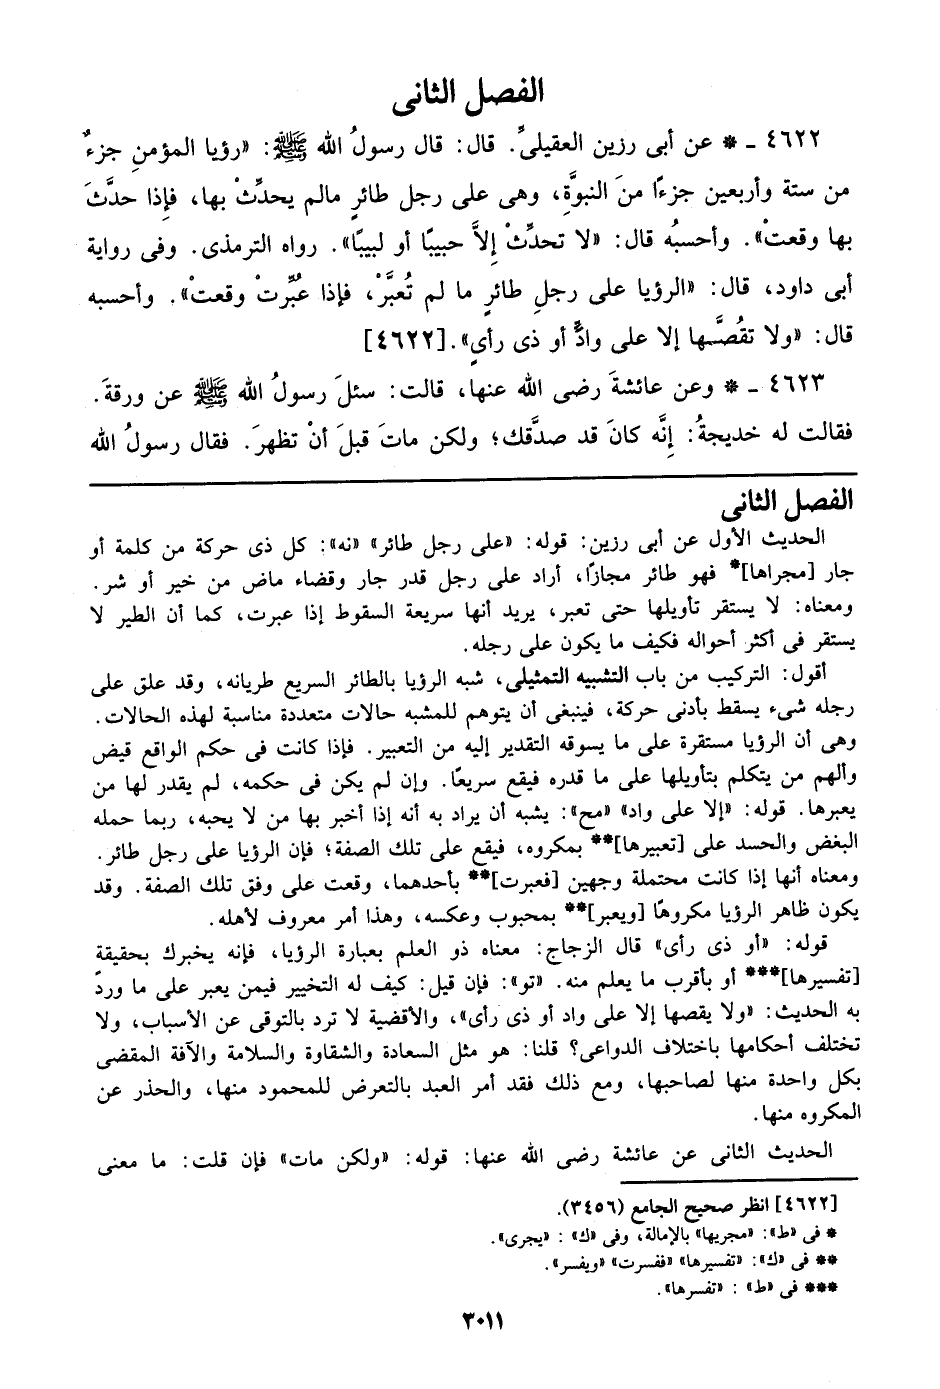 الفصل الثانى
٤٦٢٢ ـ * عن أبى رزين العقيلىِّ. قال: قال رسولُ الله ﷺ: «رؤيا المؤمنِ جزءٌ
من ستة وأربعين جزءًا منَ النبوَّةِ، وهى على رجل طائرٍ مالم يحدِّثْ بها، فإِذا حدَّثَ
بها وقعتْ». وأحسبُه قال: «لا تحدِّثْ إِلاَّ حبيبًا أو لبيبًا». رواه الترمذى. وفى رواية
أبى داود، قال: «الرؤيا على رجلِ طائرٍ ما لم تُعبَّرْ، فإذا عُبِّرتْ وقعتْ». وأحسبه
قال: «ولا تقُصَّها إلا على وادٍّ أو ذى رأىٍ».[٤٦٢٢]
٤٦٢٣ ـ * وعن عائشةَ رضى الله عنها، قالت: سئلَ رسولُ الله ﷺ عن ورقةَ.
فقالت له خديجةُ: إِنَّه كانَ قد صدَّقك؛ ولكن ماتَ قبلَ أنْ تظهرَ. فقال رسولُ الله
الفصل الثانى
الحديث الأول عن أبى رزين: قوله: «على رجل طائر» «نه»: كل ذى حركة من كلمة أو
جار [مجراها]* فهو طائر مجازًا، أراد على رجل قدر جار وقضاء ماض من خير أو شر.
ومعناه: لا يستقر تأويلها حتى تعبر، يريد أنها سريعة السقوط إذا عبرت، كما أن الطير لا
يستقر فى أكثر أحواله فكيف ما يكون على رجله.
أقول: التركيب من باب التشبيه التمثيلى، شبه الرؤيا بالطائر السريع طريانه، وقد علق على
رجله شىء يسقط بأدنى حركة، فينبغى أن يتوهم للمشبه حالات متعددة مناسبة لهذه الحالات.
وهى أن الرؤيا مستقرة على ما يسوقه التقدير إليه من التعبير. فإذا كانت فى حكم الواقع قيض
وألهم من يتكلم بتأويلها على ما قدره فيقع سريعًا. وإن لم يكن فى حكمه، لم يقدر لها من
يعبرها. قوله: «إلا على واد» «مح»: يشبه أن يراد به أنه إذا أخبر بها من لا يحبه، ربما حمله
البغض والحسد على [تعبيرها]** بمكروه، فيقع على تلك الصفة؛ فإن الرؤيا على رجل طائر.
ومعناه أنها إذا كانت محتملة وجهين [فعبرت]** بأحدهما، وقعت على وفق تلك الصفة. وقد
يكون ظاهر الرؤيا مكروهًا [ويعبر]** بمحبوب وعكسه، وهذا أمر معروف لأهله.
قوله: «أو ذى رأى» قال الزجاج: معناه ذو العلم بعبارة الرؤيا، فإنه يخبرك بحقيقة
[تفسيرها]*** أو بأقرب ما يعلم منه. «تو»: فإن قيل: كيف له التخيير فيمن يعبر على ما ورد
به الحديث: «ولا يقصها إلا على واد أو ذى رأى»، والأقضية لا ترد بالتوقى عن الأسباب، ولا
تختلف أحكامها باختلاف الدواعى؟ قلنا: هو مثل السعادة والشقاوة والسلامة والآفة المقضى
بكل واحدة منها لصاحبها، ومع ذلك فقد أمر العبد بالتعرض للمحمود منها، والحذر عن
المكروه منها.
الحديث الثانى عن عائشة رضى الله عنها: قوله: «ولكن مات» فإن قلت: ما معنى
[٤٦٢٢] انظر صحيح الجامع (٣٤٥٦).
* فى «ط»: «مجريها» بالإمالة، وفى «ك» : «يجرى».
** فى «ك»: «تفسيرها» «ففسرت» «ويفسر».
*** فى «ط» : «تفسرها».
٣٠١١